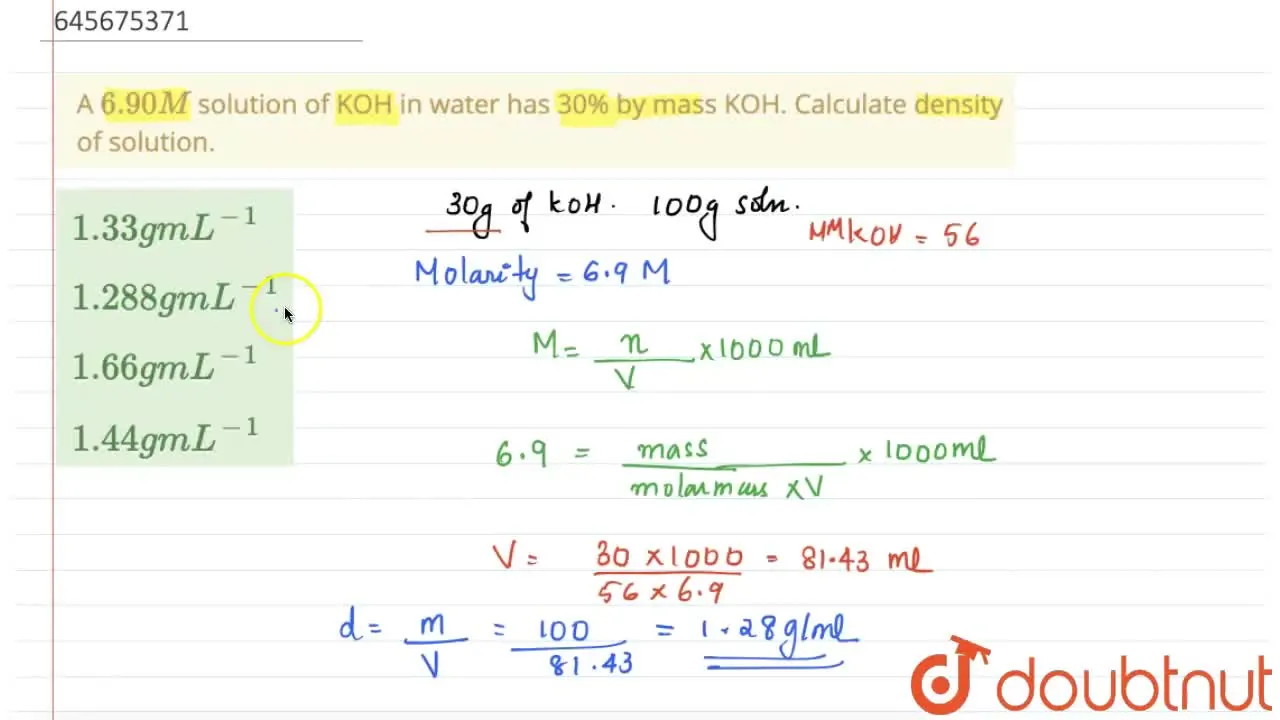 645675371
A 6.90M solution of KOH in water has 30% by mass KOH. Calculate density
of solution.
1.33gmL⁻¹
1.288gmL⁻¹
1.66gmL⁻¹
1.44gmL⁻¹
30g of KOH. 100g soln.
MMKOH = 56
Molarity = 6.9 M
M = n/V × 1000 ml
6.9 = mass/molarmass × V × 1000 ml
V = 30 × 1000/56 × 6.9 = 81.43 ml
d = m/V = 100/81.43 = 1.28g/ml
doubtnut